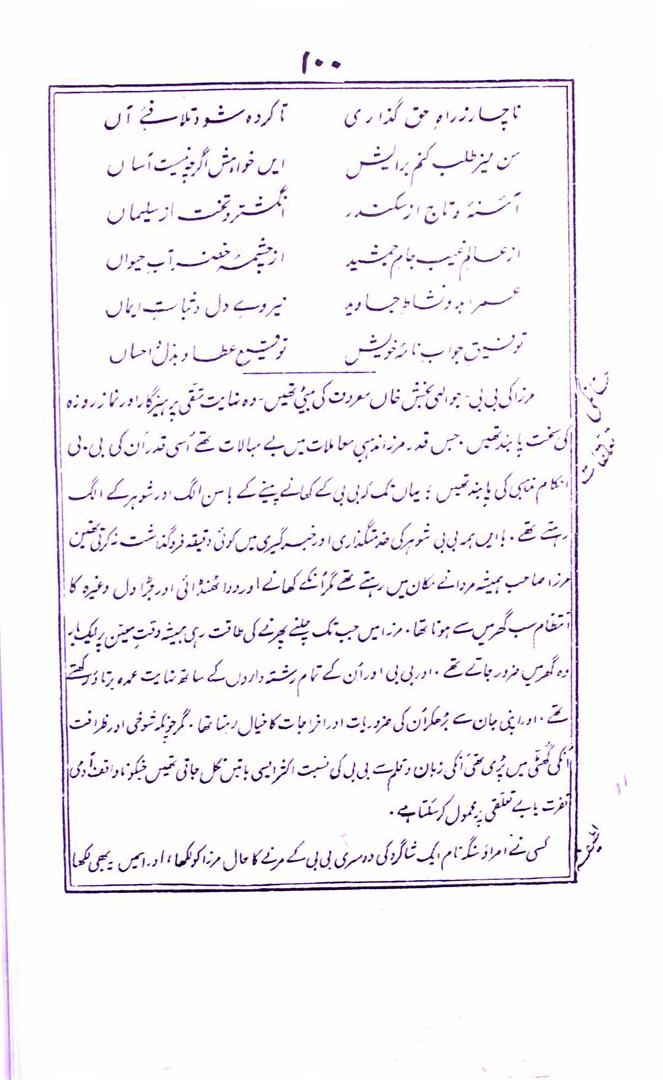 ۱۰۰
ناچار ز راہِ حق گذاری تا کردہ شود تلافئے آں
من نیز طلب کنم برایش ایں خواہش اگرچہ نیست آساں
آئنۂ و تاج از سکندر انگشتر و تخت از سلیماں
از عالمِ غیب جامِ جمشید از چشمۂ خضر آبِ حیواں
عمرِ ابد و نشاطِ جاوید نیروے دل و ثباتِ ایماں
توفیقِ جواب نامۂ خویش توقیعِ عطا و بذلِ احساں
مرزا کی بی بی ۔ جو الٰہی بخش خاں معروف کی بیٹی تھیں ۔ وہ نہایت متقی پرہیزگار اور نماز روزہ
کی سخت پابند تھیں ۔ جس قدر مرزا مذہبی معاملات میں بے مبالات تھے اُسی قدر اُن کی بی بی
احکام مذہبی کی پابند تھیں ؛ یہاں تک کہ بی بی کے کھانے پینے کے باسن الگ اور شوہر کے الگ
رہتے تھے ۔ باایں ہمہ بی بی شوہر کی خدمتگذاری اور خبرگیری میں کوئی دقیقہ فروگذاشت نہ کرتی تھیں
مرزا صاحب ہمیشہ مردانے مکان میں رہتے تھے مگر اُنکے کھانے اور دوا ٹھنڈائی اور جڑاول وغیرہ کا
انتظام سب گھر میں سے ہوتا تھا ۔ مرزا میں جب تک چلنے پھرنے کی طاقت رہی ہمیشہ وقتِ معین پر ایک بار
وہ گھر میں ضرور جاتے تھے ۔ اور بی بی اور اُن کے تمام رشتہ داروں کے ساتھ نہایت عمدہ برتاؤ رکھتے
تھے ۔ اور اپنی جان سے بڑھکر اُن کی ضروریات اور اخراجات کا خیال رہتا تھا ۔ مگر چونکہ شوخی اور ظرافت
اُنکی گھُٹی میں پڑی تھی اُنکی زبان و قلم سے بی بی کی نسبت اکثر ایسی باتیں نکل جاتی تھیں جنکو ناواقف آدمی
نفرت یا بے تعلقی پر محمول کرسکتا ہے ۔
کسی نے امراؤ سنگہ نام ایک شاگرد کی دوسری بی بی کے مرنے کا حال مرزا کو لکھا ؛ اور اسمیں یہ بھی لکھا